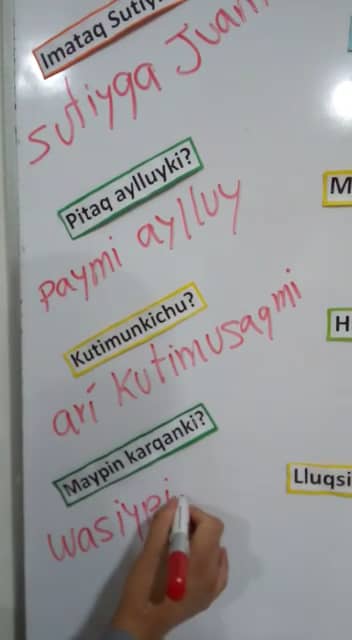 Imataq Sutiy
sutiyqa Juan
Pitaq aylluyki?
paymi aylluy
M
Kutimunkichu?
arí kutimusaqmi
H
Maypin karqanki?
Lluqsi
wasiypi